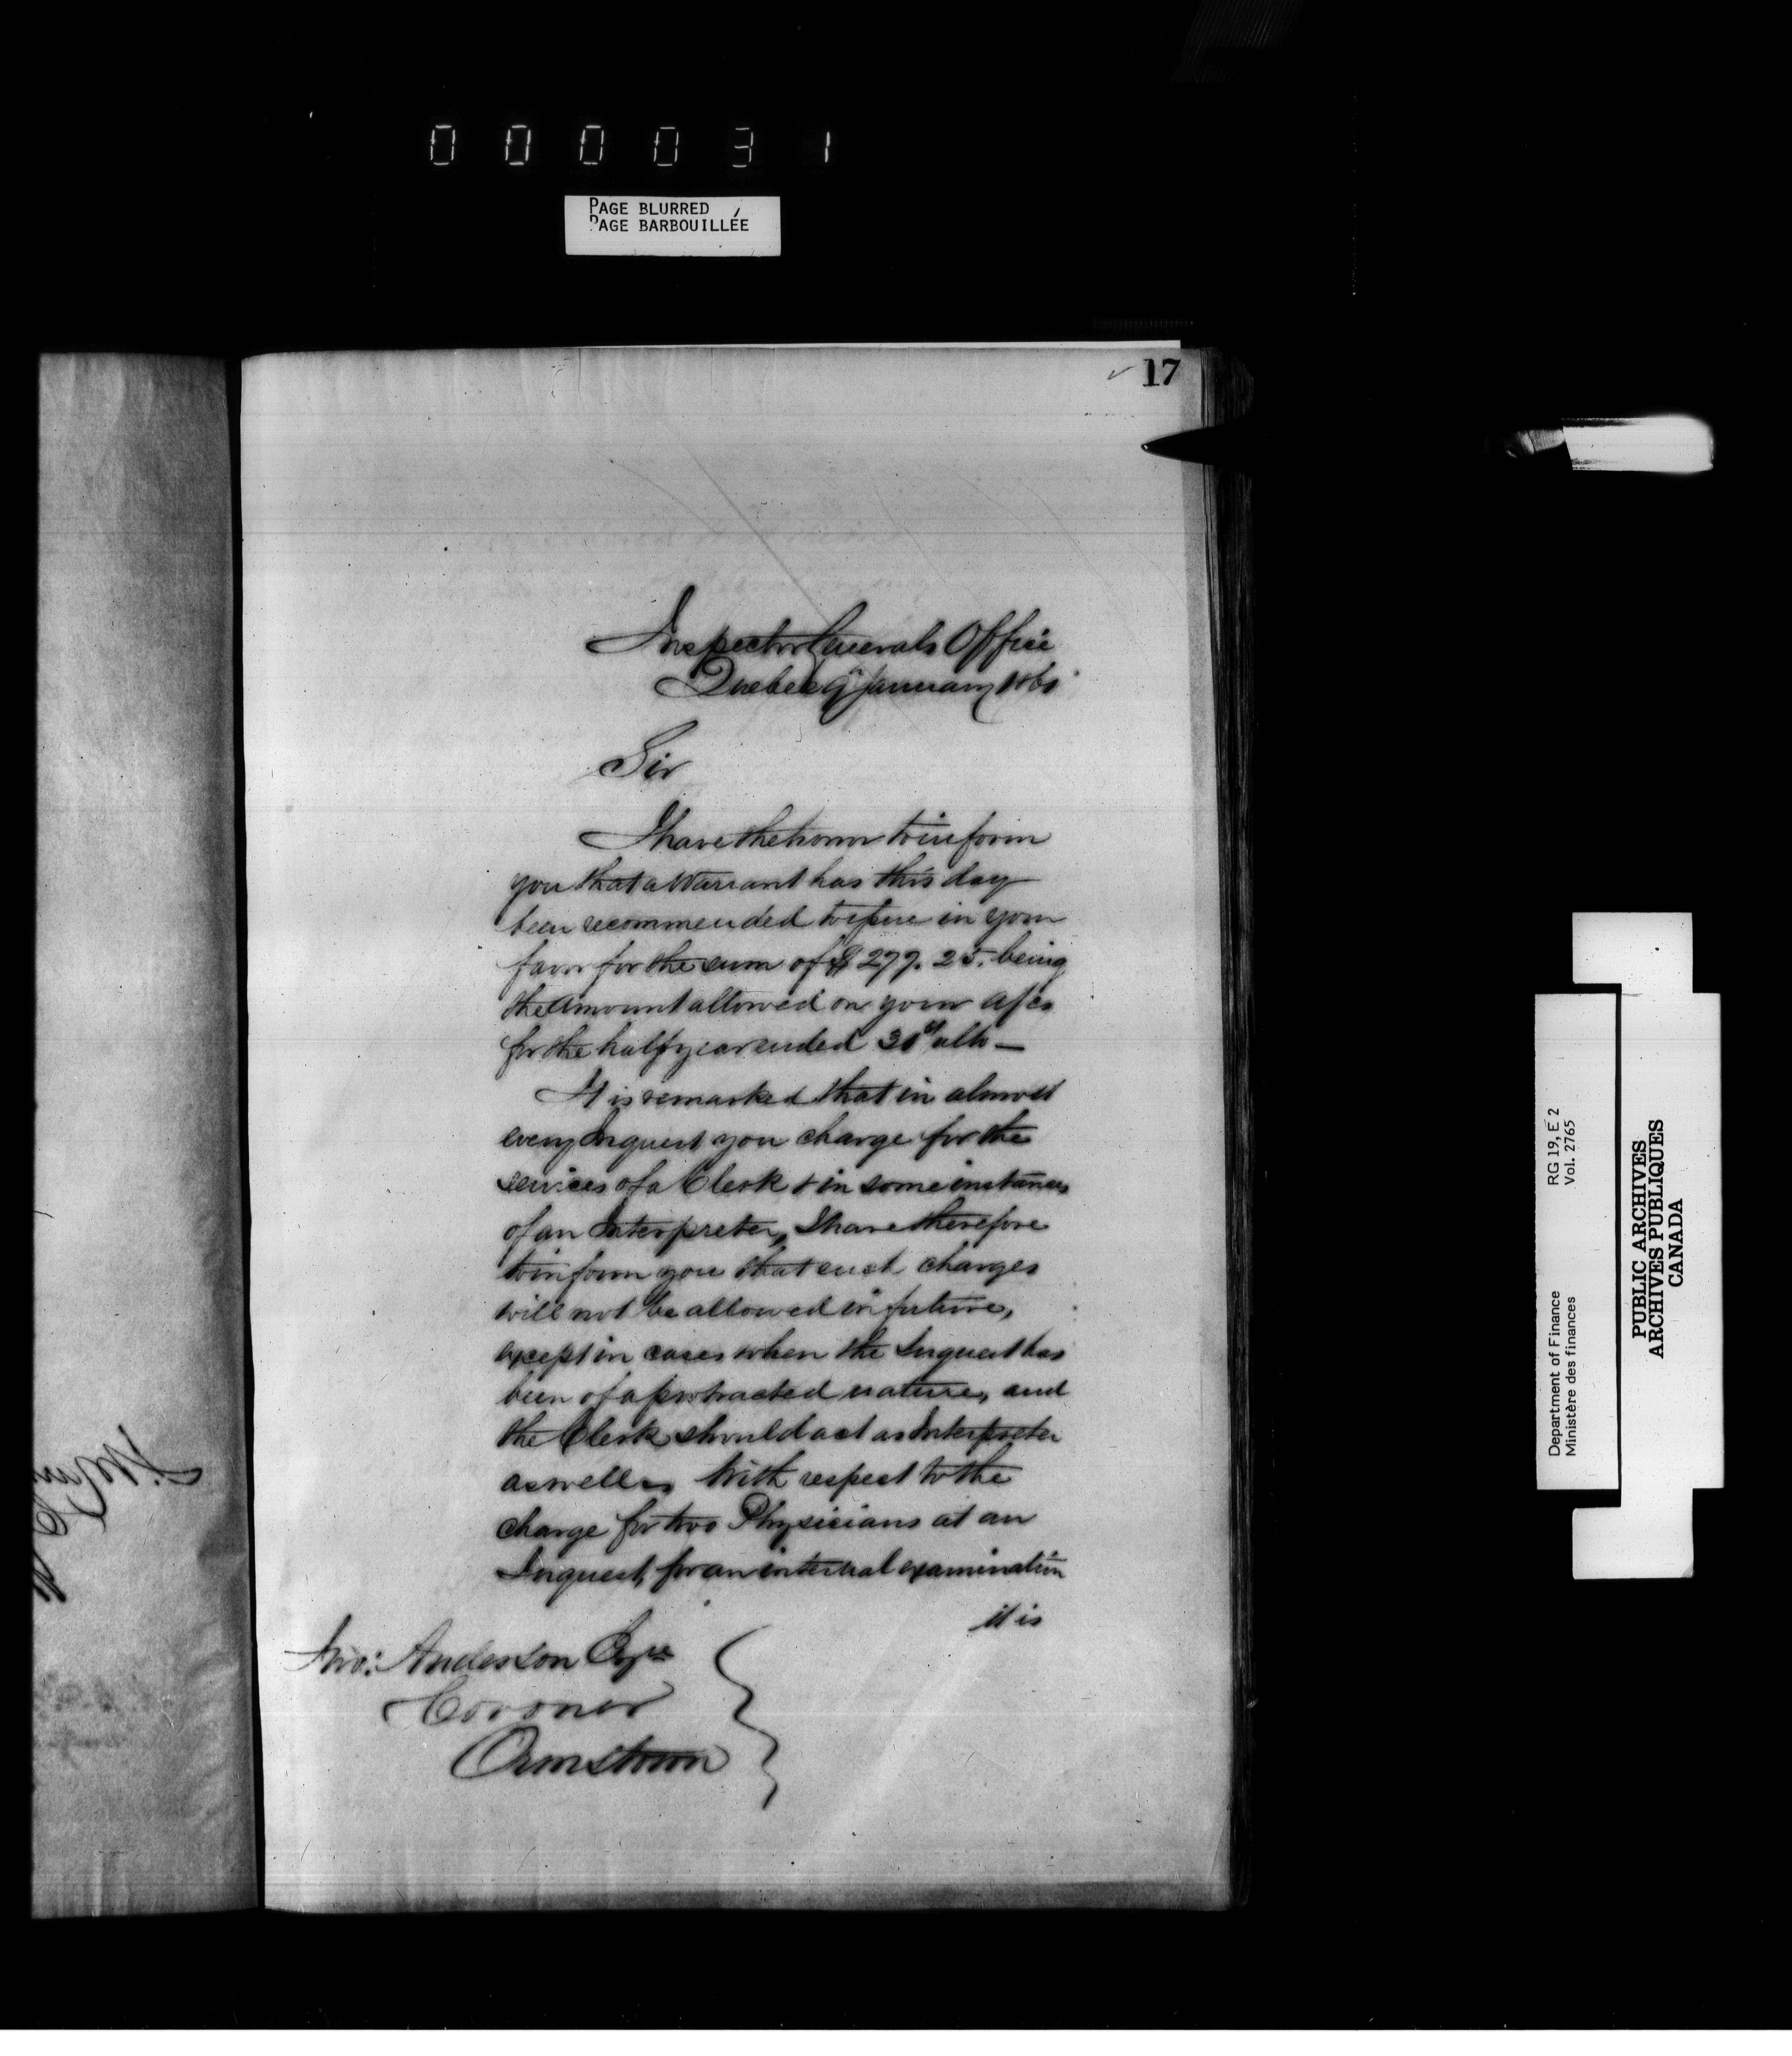 000031
PAGE BLURRED
PAGE BARBOUILLÉE
17
Inspector Generals Office
Quebec 9th January 1861
Sir
I have the honor to inform
you that a Warrant has this day
been recommended to issue in your
favor for the sum of $277.25. being
the amount allowed on your a/cs
for the half year ended 31st ulto —
It is remarked that in almost
every Inquest you charge for the
services of a Clerk & in some instances
of an Interpreter, I have therefore
to inform you that such charges
will not be allowed in future,
except in cases when the Inquest has
been of a protracted nature, and
the Clerk should act as Interpreter
as well. With respect to the
charge for two Physicians at an
Inquest, for an internal examination
it is
Jno: Anderson Esqre
Coroner
Ormstown
Department of Finance RG 19, E 2
Ministère des finances Vol. 2765
PUBLIC ARCHIVES
ARCHIVES PUBLIQUES
CANADA